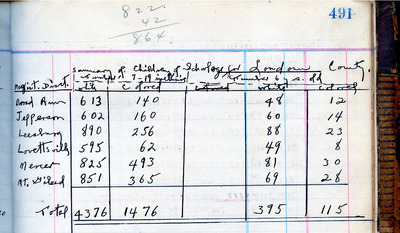 491
822
42
864
Summary of Children of School age for Loudoun County.
7-19 inclusive 6 yrs. old
Magist. Dist. white Colored white Colored
Broad Run 613 140 48 12
Jefferson 602 160 60 14
Leesburg 890 256 88 23
Lovettsville 595 62 49 8
Mercer 825 493 81 30
Mt. Gilead 851 365 69 28
Total 4376 1476 395 115